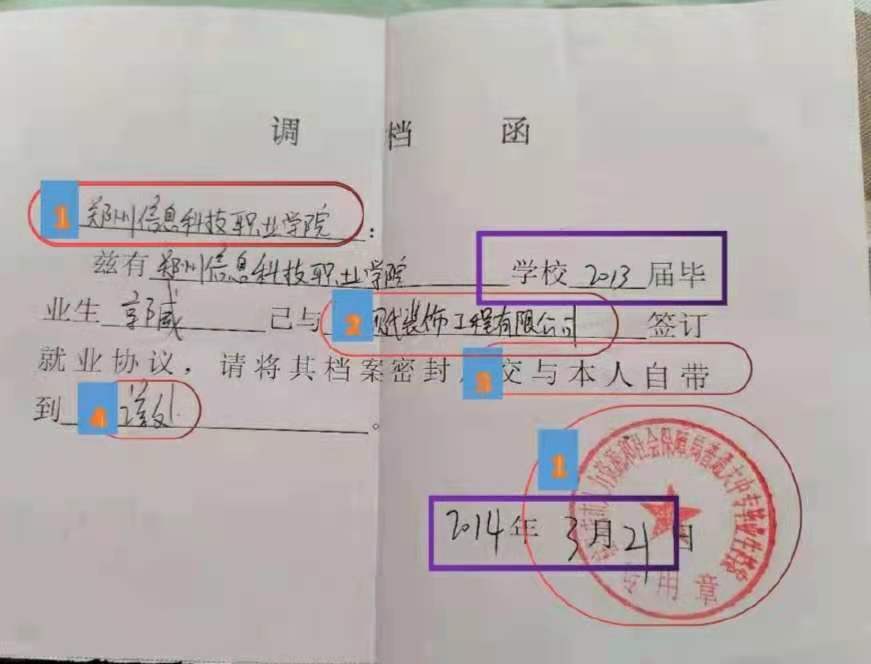 调档函
1 郑州信息科技职业学院:
兹有郑州信息科技职业学院 学校 2013 届毕
业生 郭威 已与 2 装饰工程有限公司 签订
就业协议,请将其档案密封, 3 交与本人自带
到 4
1
力资源和社会保障局普通大中专学
2014年 3月21日
专用章